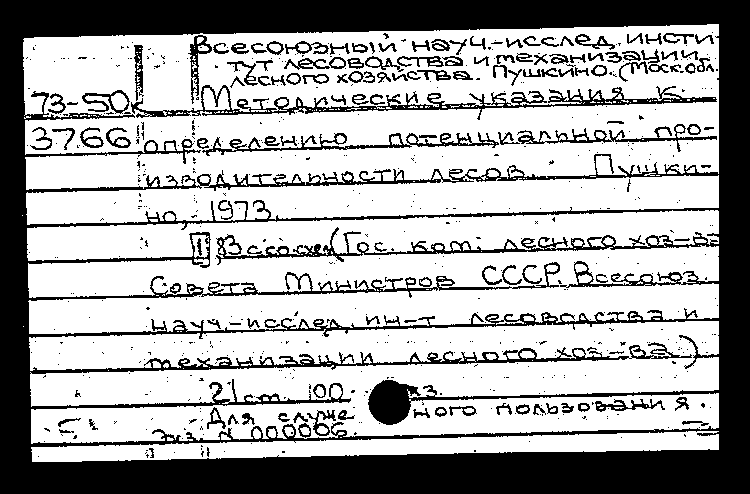 Всесоюзный науч.-исслед. инсти-
тут лесоводства и механизации
лесного хозяйства. Пушкино. (Моск.обл.
73-50к Методические указания к
3766 определению потенциальной про-
изводительности лесов. Пушки-
но, 1973.
83 с. со схем (Гос. ком. лесного хоз-ва
Совета Министров СССР. Всесоюз.
науч.-исслед. ин-т лесоводства и
механизации лесного хоз-ва.)
21 cm. 100 кз.
Для служе ного пользования.
Экз. N 000006.